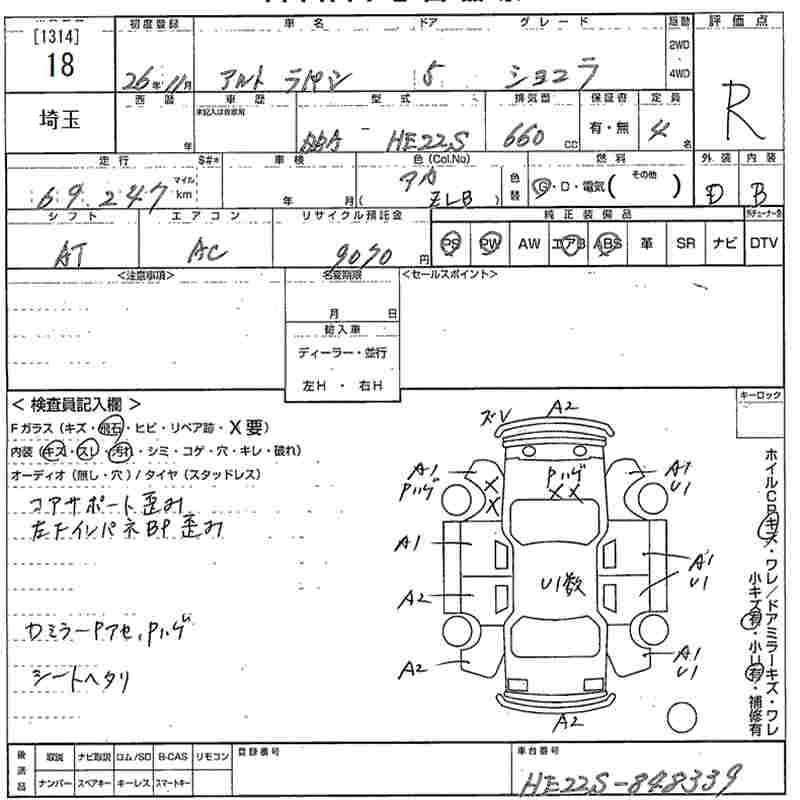 [1314]
18
埼玉
初度登録
26年11月
車名
アルト ラパン
ドア
5
グレード
ショコラ
駆動
2WD
4WD
評価点
R
西暦
年
車歴
未記入は自家用
型式
DBA - HE22S
排気量
660 cc
保証書
有・無
定員
4名
走行
69,247
マイル
km
S#*
車検
年 月
色(Col.No)
アカ
( ZLB )
色替
燃料
G・D・電気( その他 )
外装
D
内装
B
シフト
AT
エアコン
AC
リサイクル預託金
9090円
純正装備品
PS PW AW エアB ABS 革 SR ナビ
DTV
<注意事項>
名変期限
月 日
輸入車
ディーラー・並行
左H・右H
<セールスポイント>
<検査員記入欄>
Fガラス(キズ・飛石・ヒビ・リペア跡・X要)
内装(キズ・スレ・汚れ・シミ・コゲ・穴・キレ・破れ)
オーディオ(無し・穴)/タイヤ(スタッドレス)
コアサポート歪み
左インパネBP歪み
ドミラーPアセ、Pハゲ
シートヘタリ
キーロック
ズレ
A2
A1
Pハゲ
X
X
Pハゲ
XX
A1
U1
A1
A1
U1
A2
U1数
A2
A1
U1
A2
ホイルCPキズ・ワレ/ドアミラーキズ・ワレ
小キズ有・小U有・補修有
後送品
取説 ナビ取説 ロム/SD B-CAS リモコン
ナンバー スペアキー キーレス スマートキー
登録番号
車台番号
HE22S-848339